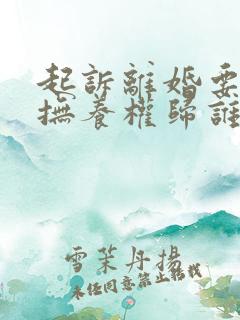 起訴離婚要
撫養權歸誰
雪茉丹揚
未经同意禁止转载